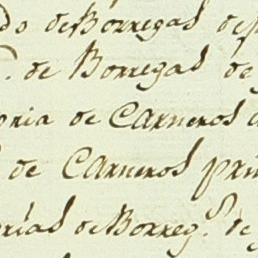 do de Borregas de
de Borregas de
oria de Carneros
de Carneros pri
rías de Borreg.s de